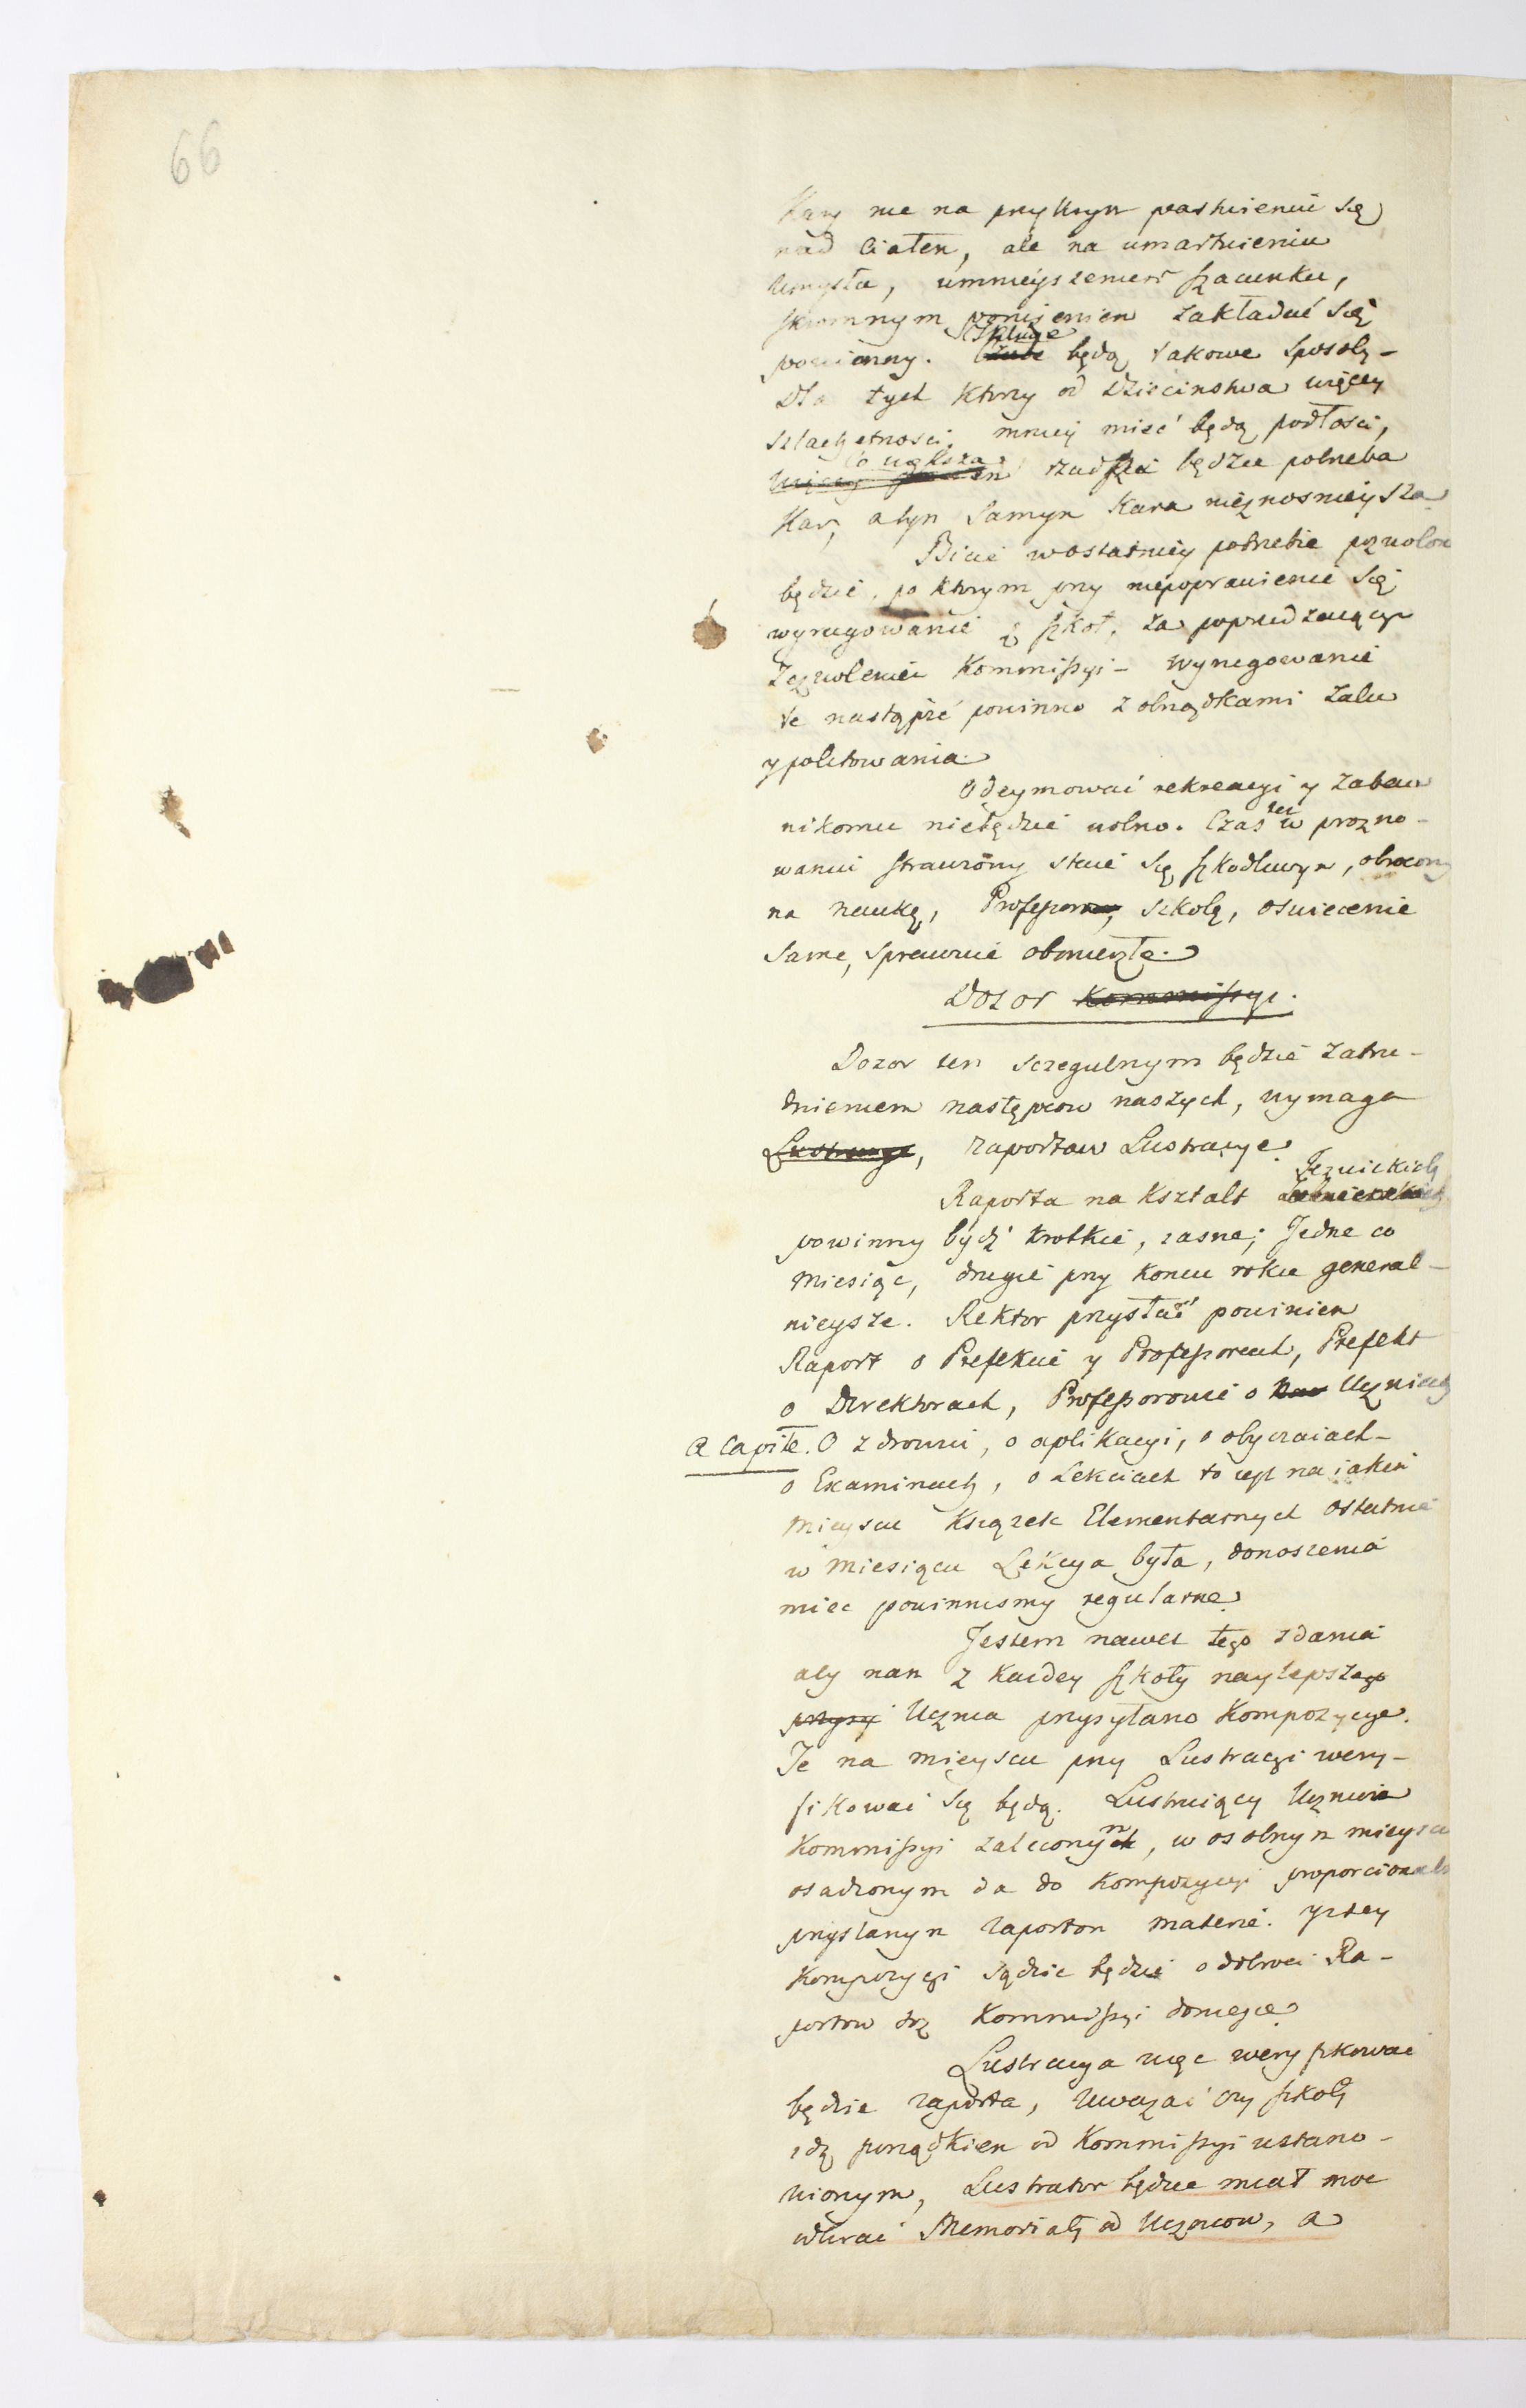 66
Kary nie na przykrym pastwieniu się
nad ciałem, ale na umartwieniu
umysłu, umnieyszeniem szacunku,
skromnym poniżeniem zakładać się
powinny. będą takowe sposoby
Dla tych ktorzy od dziecinstwa więcey
szlachetnosci, mniey mieć będą podłosci,
Co większa rzadsza będzie potrzeba
Kar, a tym samym Kara nieznosnieysza.
Bicie w ostatniey potrzebie pozwolone
będzie, po ktorym przy niepoprawieniu się
wyrugowanie z szkoł, za poprzedzaiącym
zezwoleniem Kommissyi - wyrugowanie
te nastąpić powinno z obrządkami żalu
y politowania.
Odeymować rekreacyi y zabaw
nikomu niebędzie wolno. Czas ten w prozno-
waniu strawiony staie się szkodliwym, obrocony
na naukę, Professora, szkołę, oswiecenie
same, sprawnie obmierzłe.
Dozor Kommissyi.
Dozor ten sczegulnym będzie zatru-
dnieniem następcow naszych, wymaga
Lustracye, raportow Lustracye.
Jezuickich
Raporta na kształt
powinny bydź krotkie, iasne; Jedne co
miesiąc, drugie przy koncu roku general-
nieysze. Rektor przysłać powinien
Raport o Prefekcie y Professorach, Prefekt
o Direktorach, Professorowie o Uczniach
a capite. O zdrowiu, o aplikacyi, o obyczaiach -
o Examinach, o Lekciach to iest na iakim
mieyscu Ksiązek Elementarnych ostatnia
w miesiącu Lekcya była, donoszenia
miec powinnismy regularne.
Jestem nawet tego zdania
aby nam z kazdey szkoły naylepszego
przysy Ucznia przysyłano Kompozycye.
Te na mieyscu przy Lustracyi wery-
fikować się będą. Lustruiący Uczniowi
Kommissyi zaleconym, w osobnym mieyscu
osadzonym da do kompozycyi proporcionalną
przysłanym raportom materię. Y z tey
Kompozycyi sądzic będzie o dobroci Ra-
portow do Kommissyi doniesie.
Lustracya więc weryfikować
będzie raporta, uważać czy szkoły
idą porządkiem od Kommissyi ustano-
wionym, Lustrator będzie miał moc
odbirać Memoriały od Uczniow, a